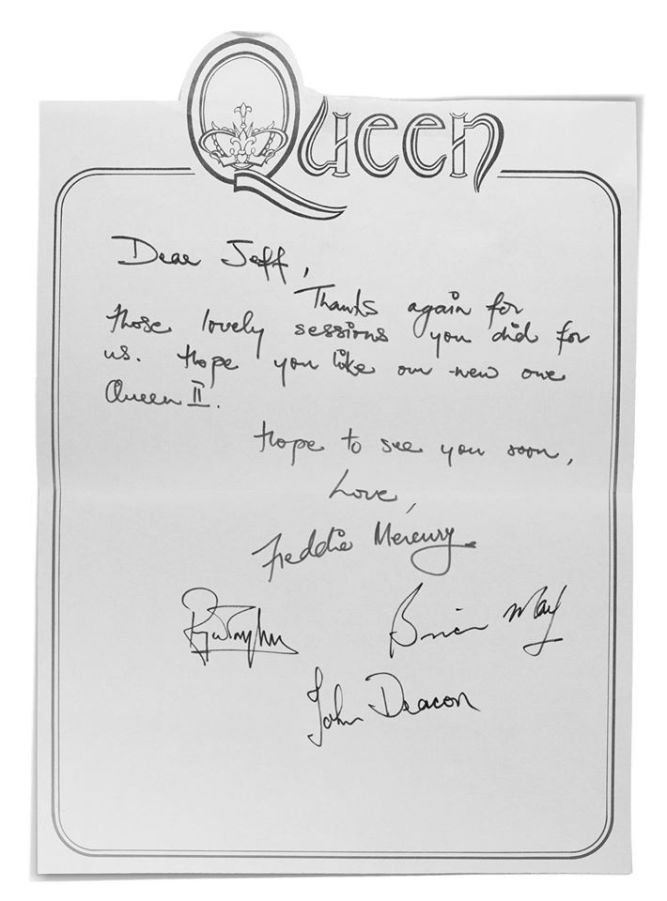 Queen
Dear Jeff,
Thanks again for
those lovely sessions you did for
us. Hope you like our new one
Queen II.
Hope to see you soon,
Love,
Freddie Mercury
Roger Taylor
Brian May
John Deacon